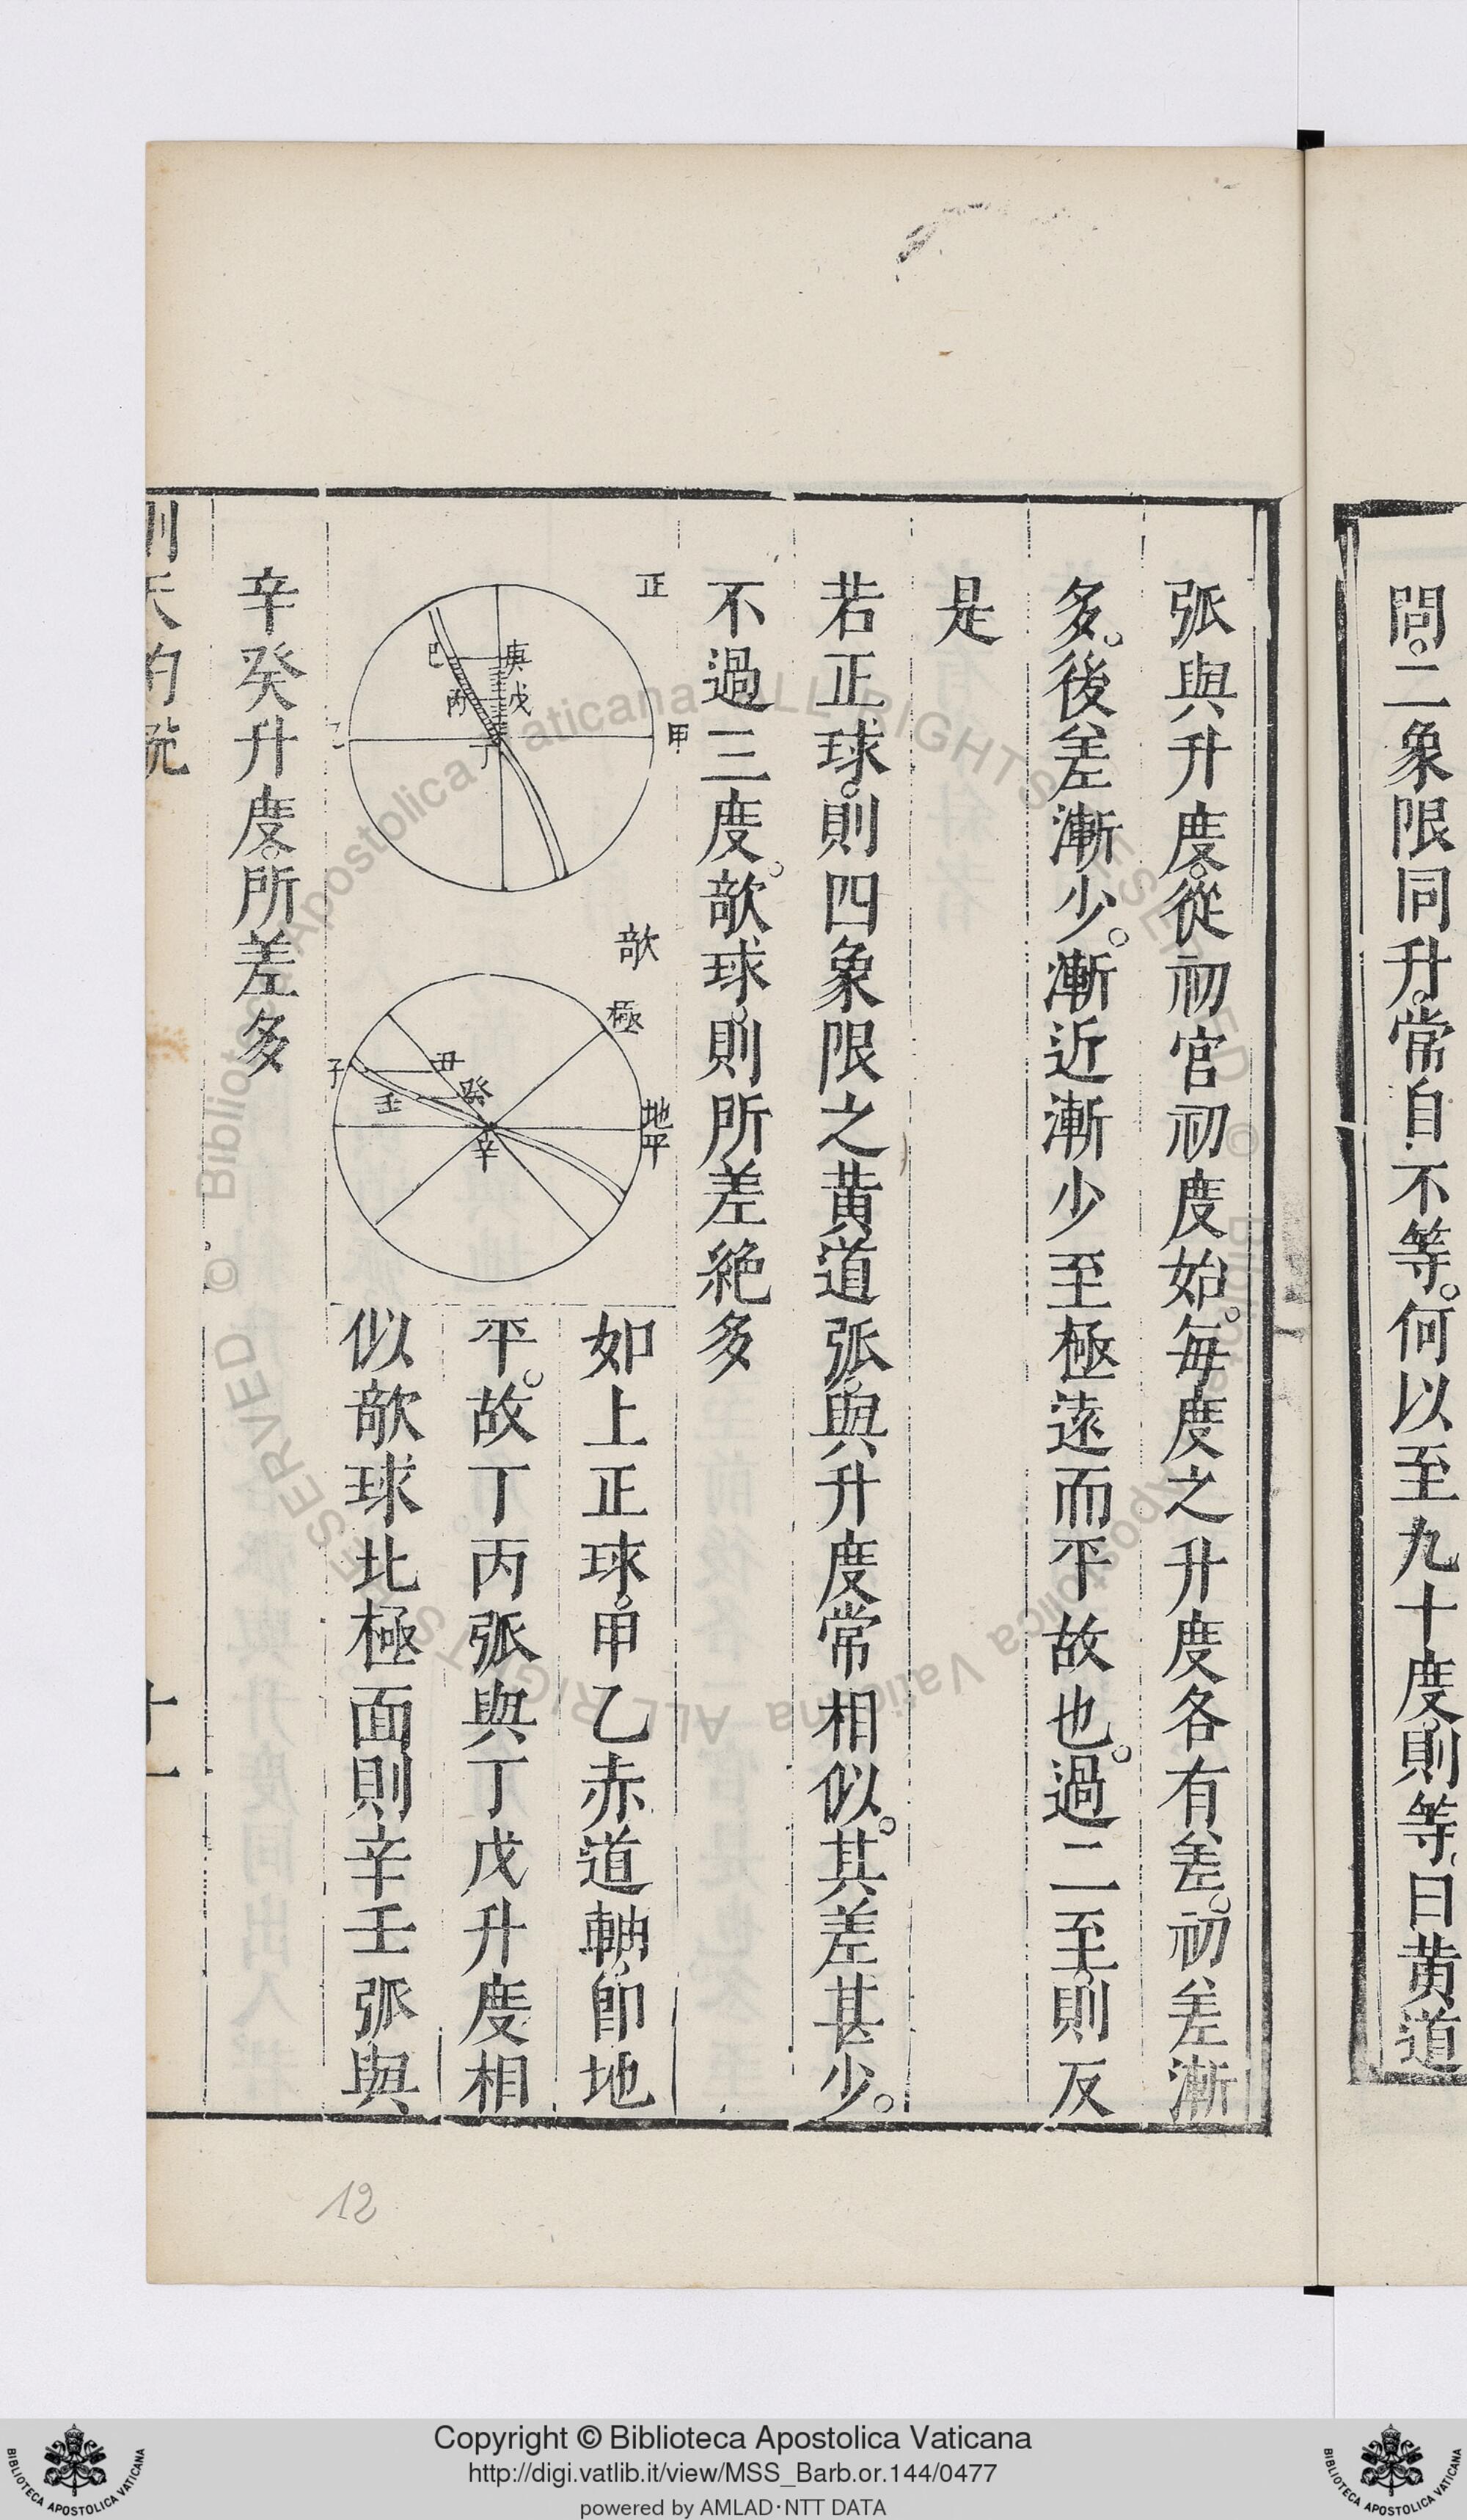 問。二象限同升。常自不等。何以至九十度。則等。曰黄道
弧與升度。從初官初度始。每度之升度各有差。初差漸
多。後差漸少。漸近漸少至極遠而平故也。過二至。則反
是
若正球。則四象限之黄道弧。與升度常相似。其差甚少。
不過三度。欹球。則所差絶多
正
甲
乙
庚
戊
己
丙
丁
欹
極
地平
丑
子
癸
壬
辛
如上正球。甲乙赤道軸。卽地
平。故丁丙弧與丁戊升度相
似欹球北極面則辛壬弧與
辛癸升度。所差多
測天約說
十一
12
Copyright © Biblioteca Apostolica Vaticana
http://digi.vatlib.it/view/MSS_Barb.or.144/0477
powered by AMLAD·NTT DATA
BIBLIOTECA APOSTOLICA VATICANA
BIBLIOTECA APOSTOLICA VATICANA
© Biblioteca Apostolica Vaticana ALL RIGHTS RESERVED
© Biblioteca Apostolica Vaticana ALL RIGHTS RESERVED